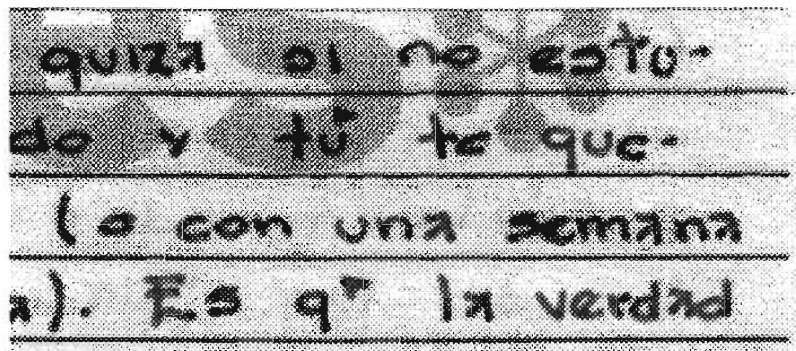 quiza si no estu-
do y tú te que-
(o con una semana
a). Es q' la verdad